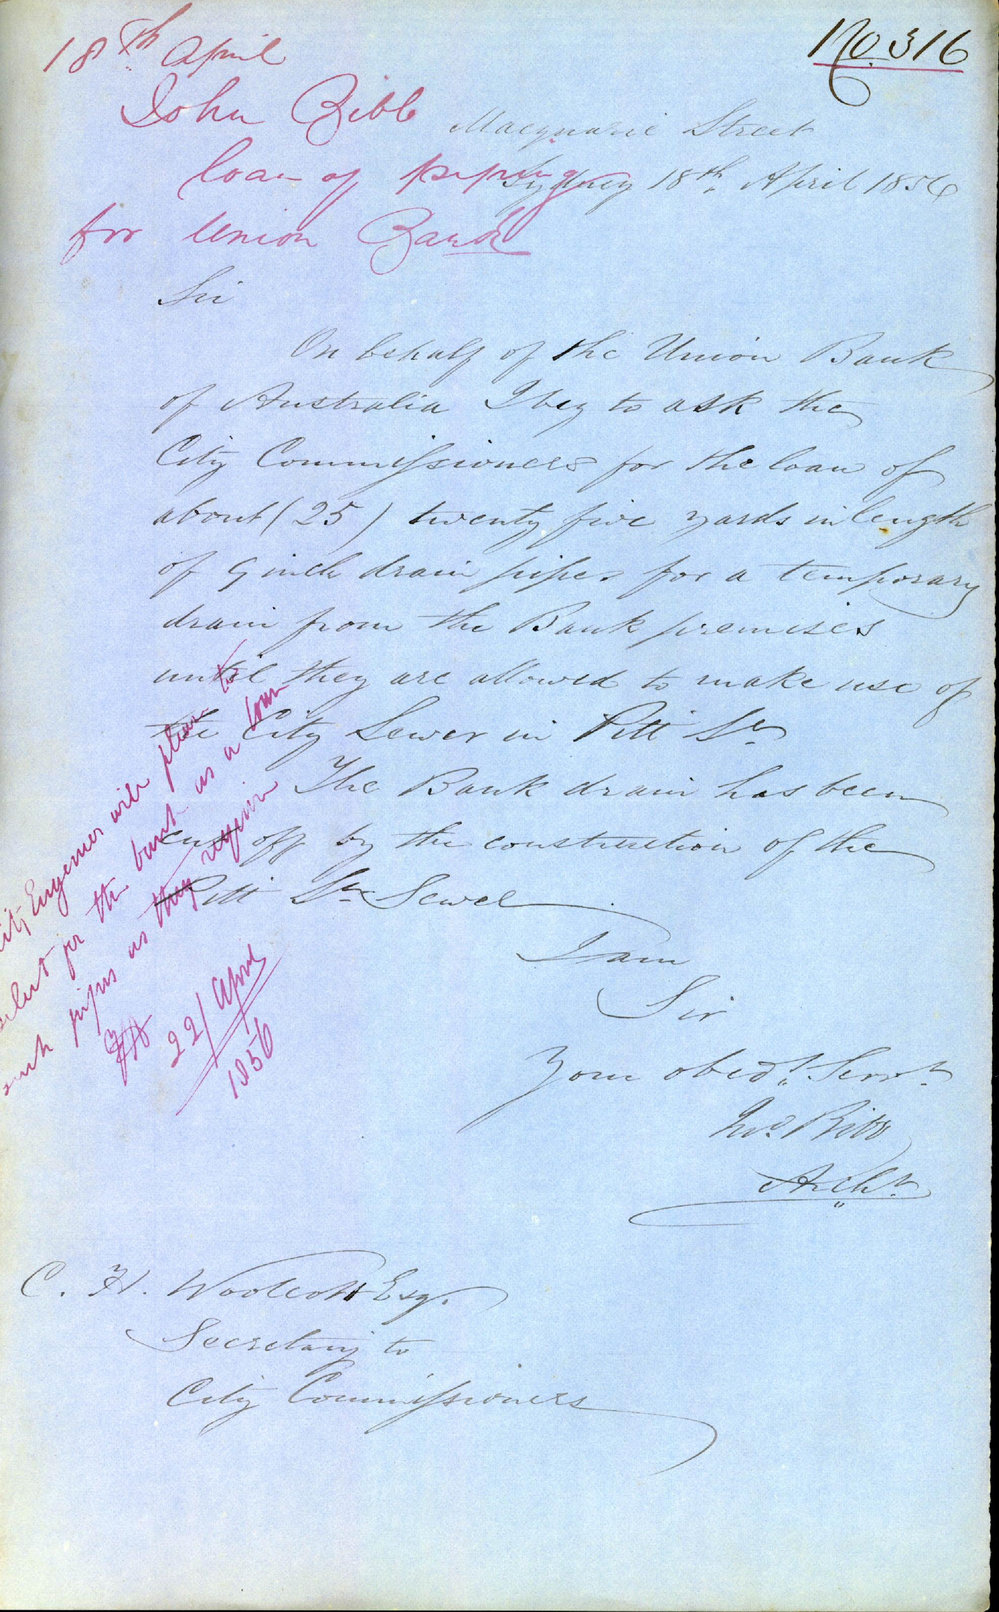 No. 316
18th April
John Bibb
loan of piping
for Union Bank
Macquarie Street
Sydney 18th April 1856
Sir
On behalf of the Union Bank
of Australia I beg to ask the
City Commissioners for the loan of
about (25) twenty five yards in length
of 9 inch drain pipes for a temporary
drain from the Bank premises
until they are allowed to make use of
the City Sewer in Pitt St.
The Bank drain has been
cut off by the construction of the
Pitt St. Sewer
I am
Sir
Your obedt. Servt.
Jno. Bibb
Archt.
C. H. Woolcott Esqr.
Secretary to
City Commissioners
City Engineer will please to
select for the bank as a loan
such pipes as they require
22/ April
1856